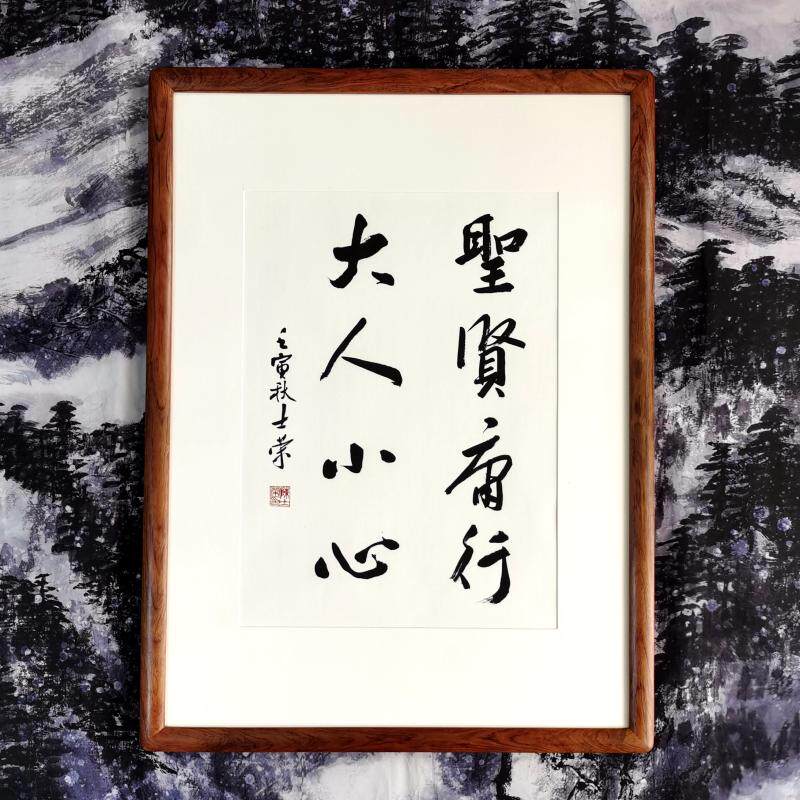 聖賢庸行
大人小心
壬寅秋士榮